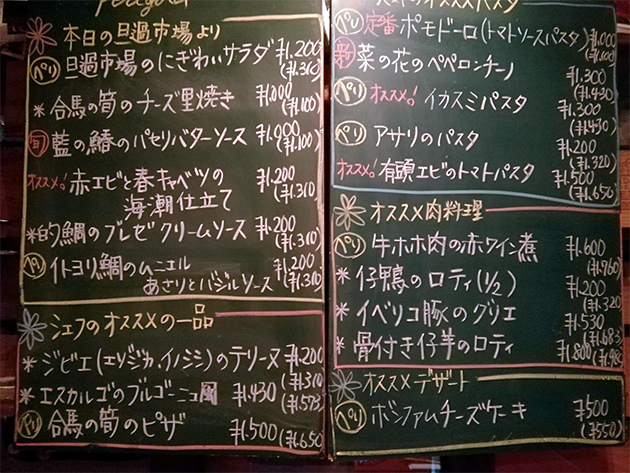 本日の旦過市場より
ペリ 旦過市場のにぎわいサラダ ¥1.200 (¥1.310)
* 合馬の筍のチーズ窯焼き ¥1.000 (¥1.100)
旬 藍の鰆のパセリバターソース ¥1.000 (¥1.100)
オススメ! 赤エビと春キャベツの
海潮仕立て ¥1.200 (¥1.310)
*的鯛のブレゼクリームソース ¥1.200 (¥1.310)
ペリ イトヨリ鯛のムニエル
あさりとバジルソース ¥1.200 (¥1.310)
シェフのオススメの一品
* ジビエ(エゾジカ、イノシシ)のテリーヌ ¥1.200 (¥1.310)
* エスカルゴのブルゴーニュ風 ¥1.430 (¥1.573)
ペリ 合馬の筍のピザ ¥1.500 (¥1.650)
オススメパスタ
ペリ 定番 ポモドーロ(トマトソースパスタ) ¥1.000 (¥1.100)
新 菜の花のペペロンチーノ ¥1.300 (¥1.430)
ペリ オススメ! イカスミパスタ ¥1.300 (¥1.430)
ペリ アサリのパスタ ¥1.200 (¥1.320)
オススメ! 有頭エビのトマトパスタ ¥1.500 (¥1.650)
オススメ肉料理
ペリ 牛ホホ肉の赤ワイン煮 ¥1.600 (¥1.760)
* 仔鴨のロティ(1/2) ¥1.200 (¥1.320)
* イベリコ豚のグリエ ¥1.530 (¥1.683)
* 骨付き仔羊のロティ ¥1.800 (¥1.980)
オススメデザート
ペリ ボンファムチーズケーキ ¥500 (¥550)